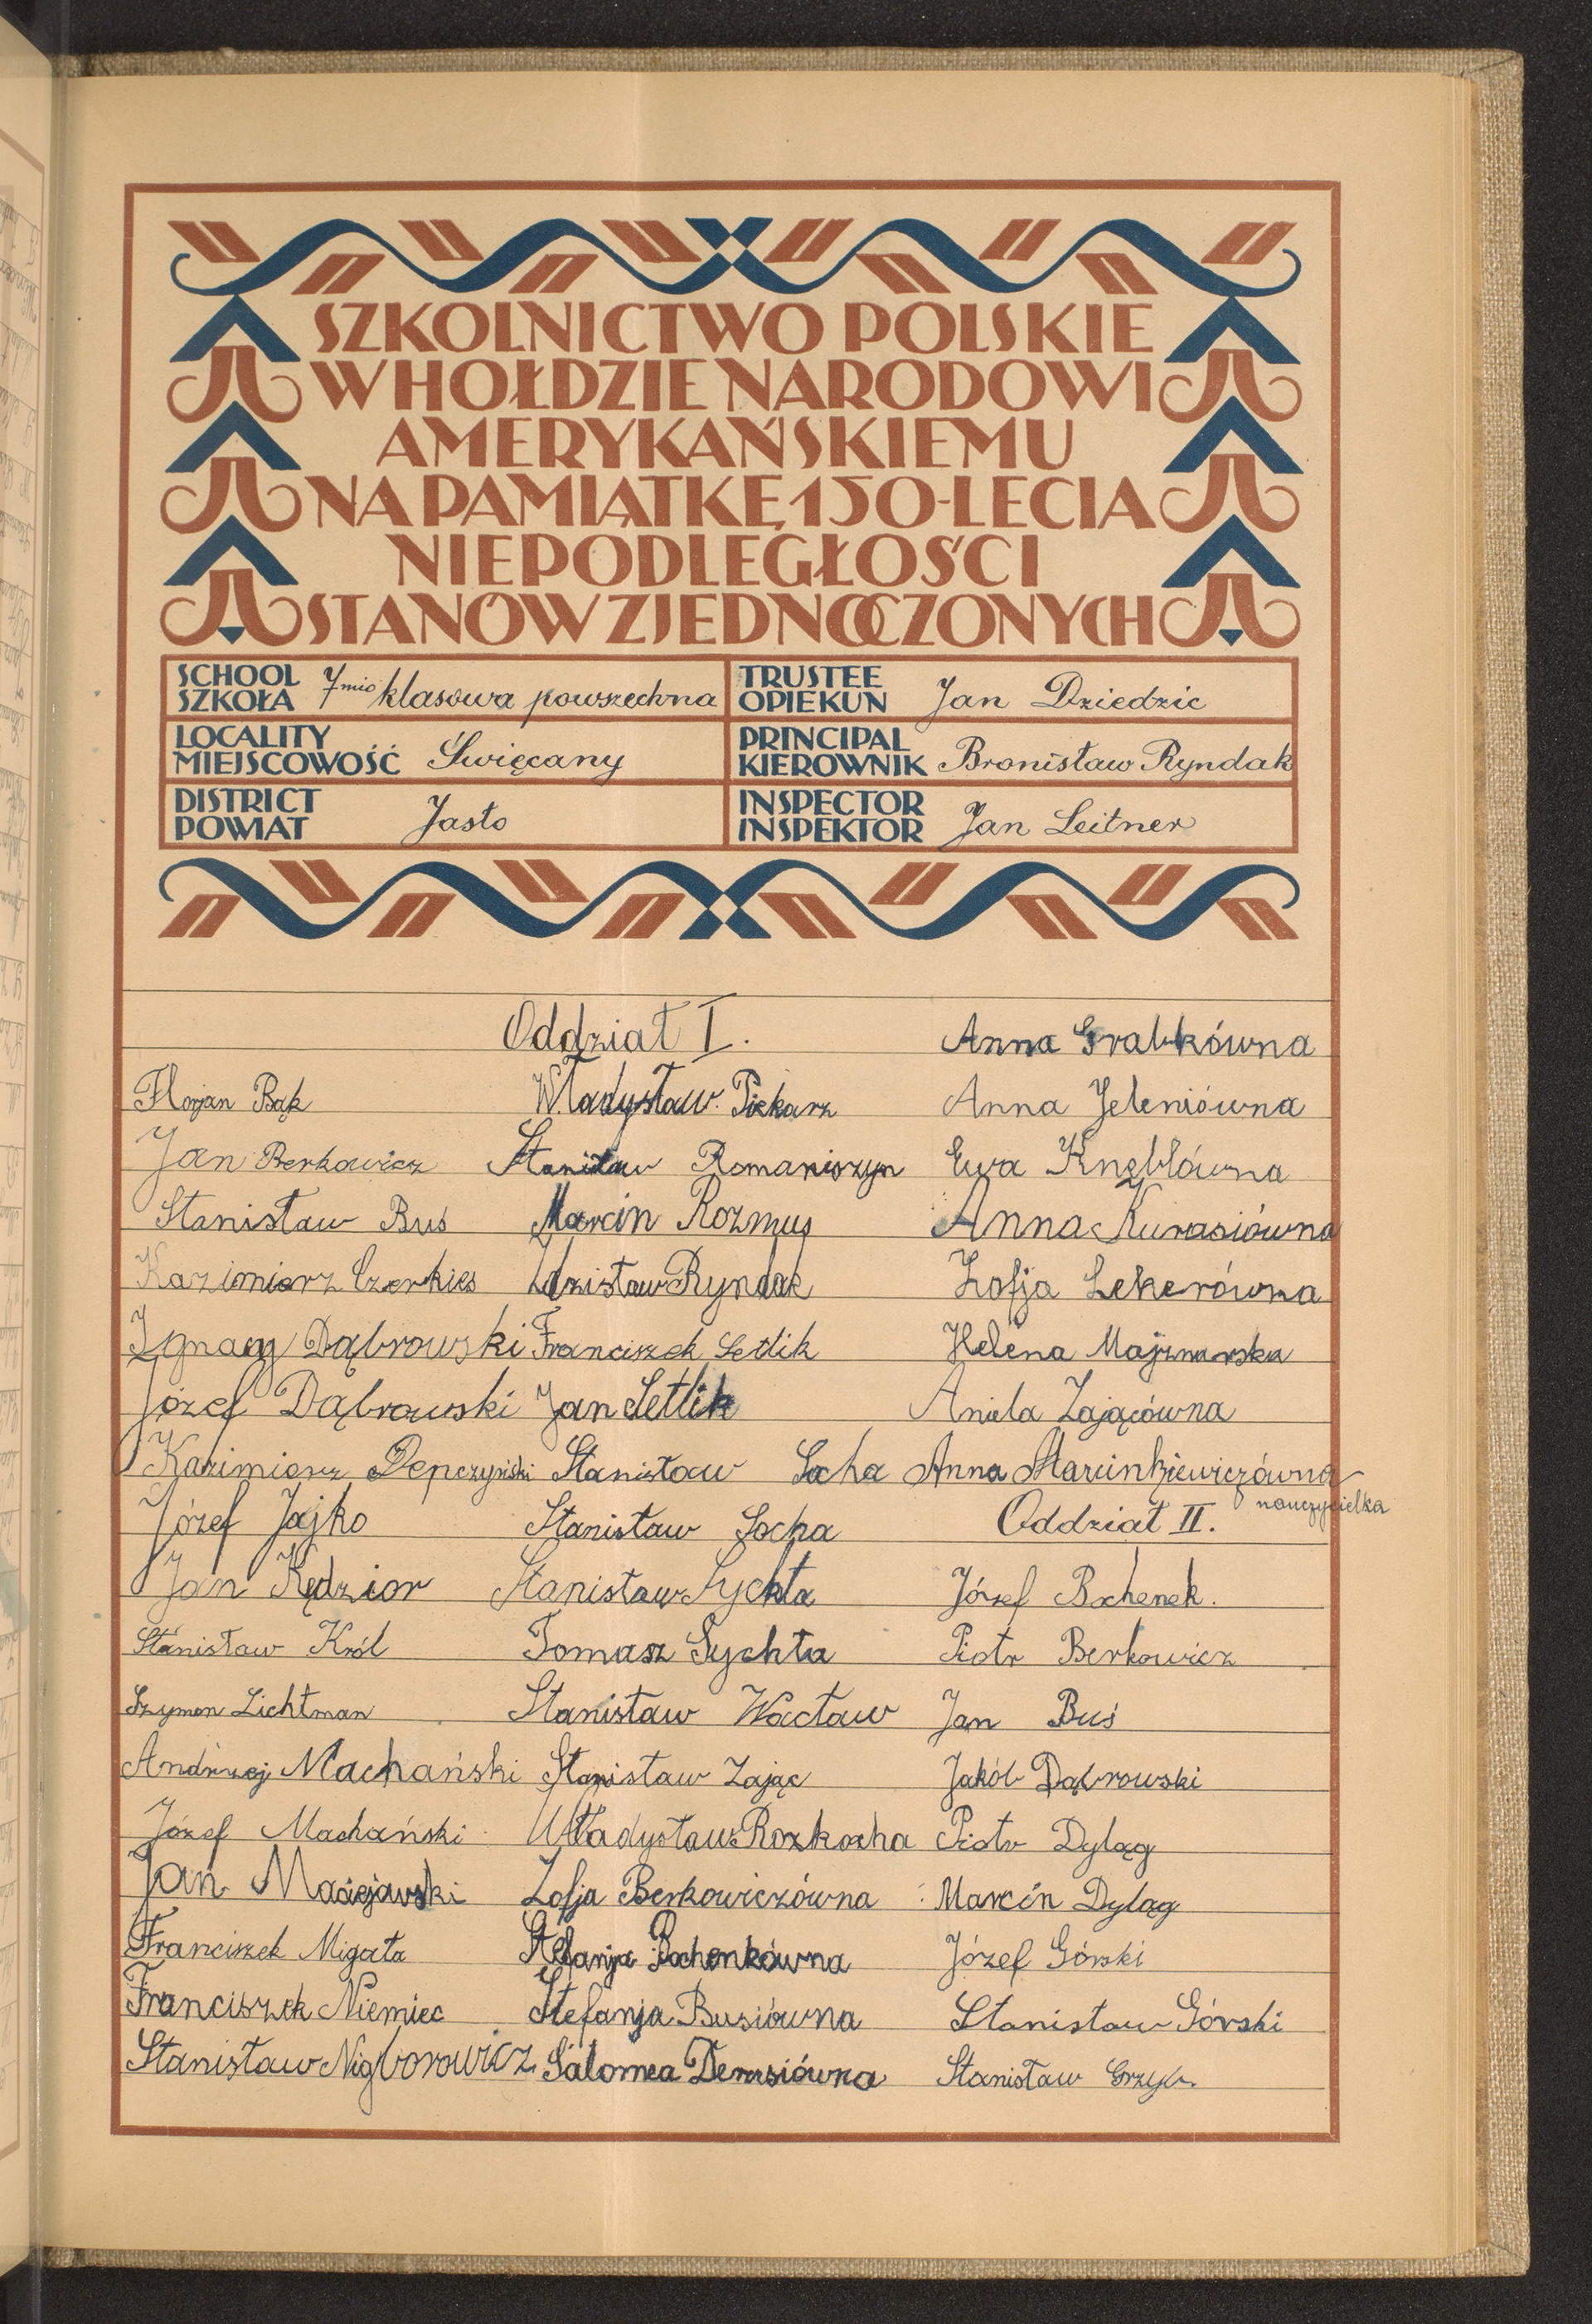 SZKOLNICTWO POLSKIE
W HOŁDZIE NARODOWI
AMERYKAŃSKIEMU
NA PAMIĄTKĘ 150-LECIA
NIEPODLEGŁOŚCI
STANÓW ZJEDNOCZONYCH
SCHOOL
SZKOŁA 7mio klasowa powszechna
TRUSTEE
OPIEKUN Jan Dziedzic
LOCALITY
MIEJSCOWOŚĆ Święcany
PRINCIPAL
KIEROWNIK Bronisław Ryndak
DISTRICT
POWIAT Jasło
INSPECTOR
INSPEKTOR Jan Leitner
Oddział I.
Florjan Bąk
Jan Berkowicz
Stanisław Buś
Kazimierz Czerkies
Ignacy Dąbrowski
Józef Dąbrowski
Kazimierz Depczyński
Józef Jajko
Jan Kędzior
Stanisław Król
Szymon Lichtman
Andrzej Machański
Józef Machański
Jan Maciejowski
Franciszek Migała
Franciszek Niemiec
Stanisław Nigborowicz
Władysław Piekarz
Stanisław Romaniszyn
Marcin Rozmus
Zdzisław Ryndak
Franciszek Setlik
Jan Setlik
Stanisław Socha
Stanisław Socha
Stanisław Sychta
Tomasz Sychta
Stanisław Wacław
Stanisław Zając
Władysław Rozkocha
Zofja Berkowiczówna
Stefanja Bochenkówna
Stefanja Busiówna
Salomea Derasiówna
Anna Grabkówna
Anna Jeleniówna
Ewa Knębłówna
Anna Kurasiówna
Zofja Lekerówna
Helena Majznarska
Aniela Zającówna
Anna Marcinkiewiczówna
nauczycielka
Oddział II.
Józef Bochenek.
Piotr Berkowicz
Jan Buś
Jakób Dąbrowski
Piotr Dyląg
Marcin Dyląg
Józef Górski
Stanisław Górski
Stanisław Grzyb